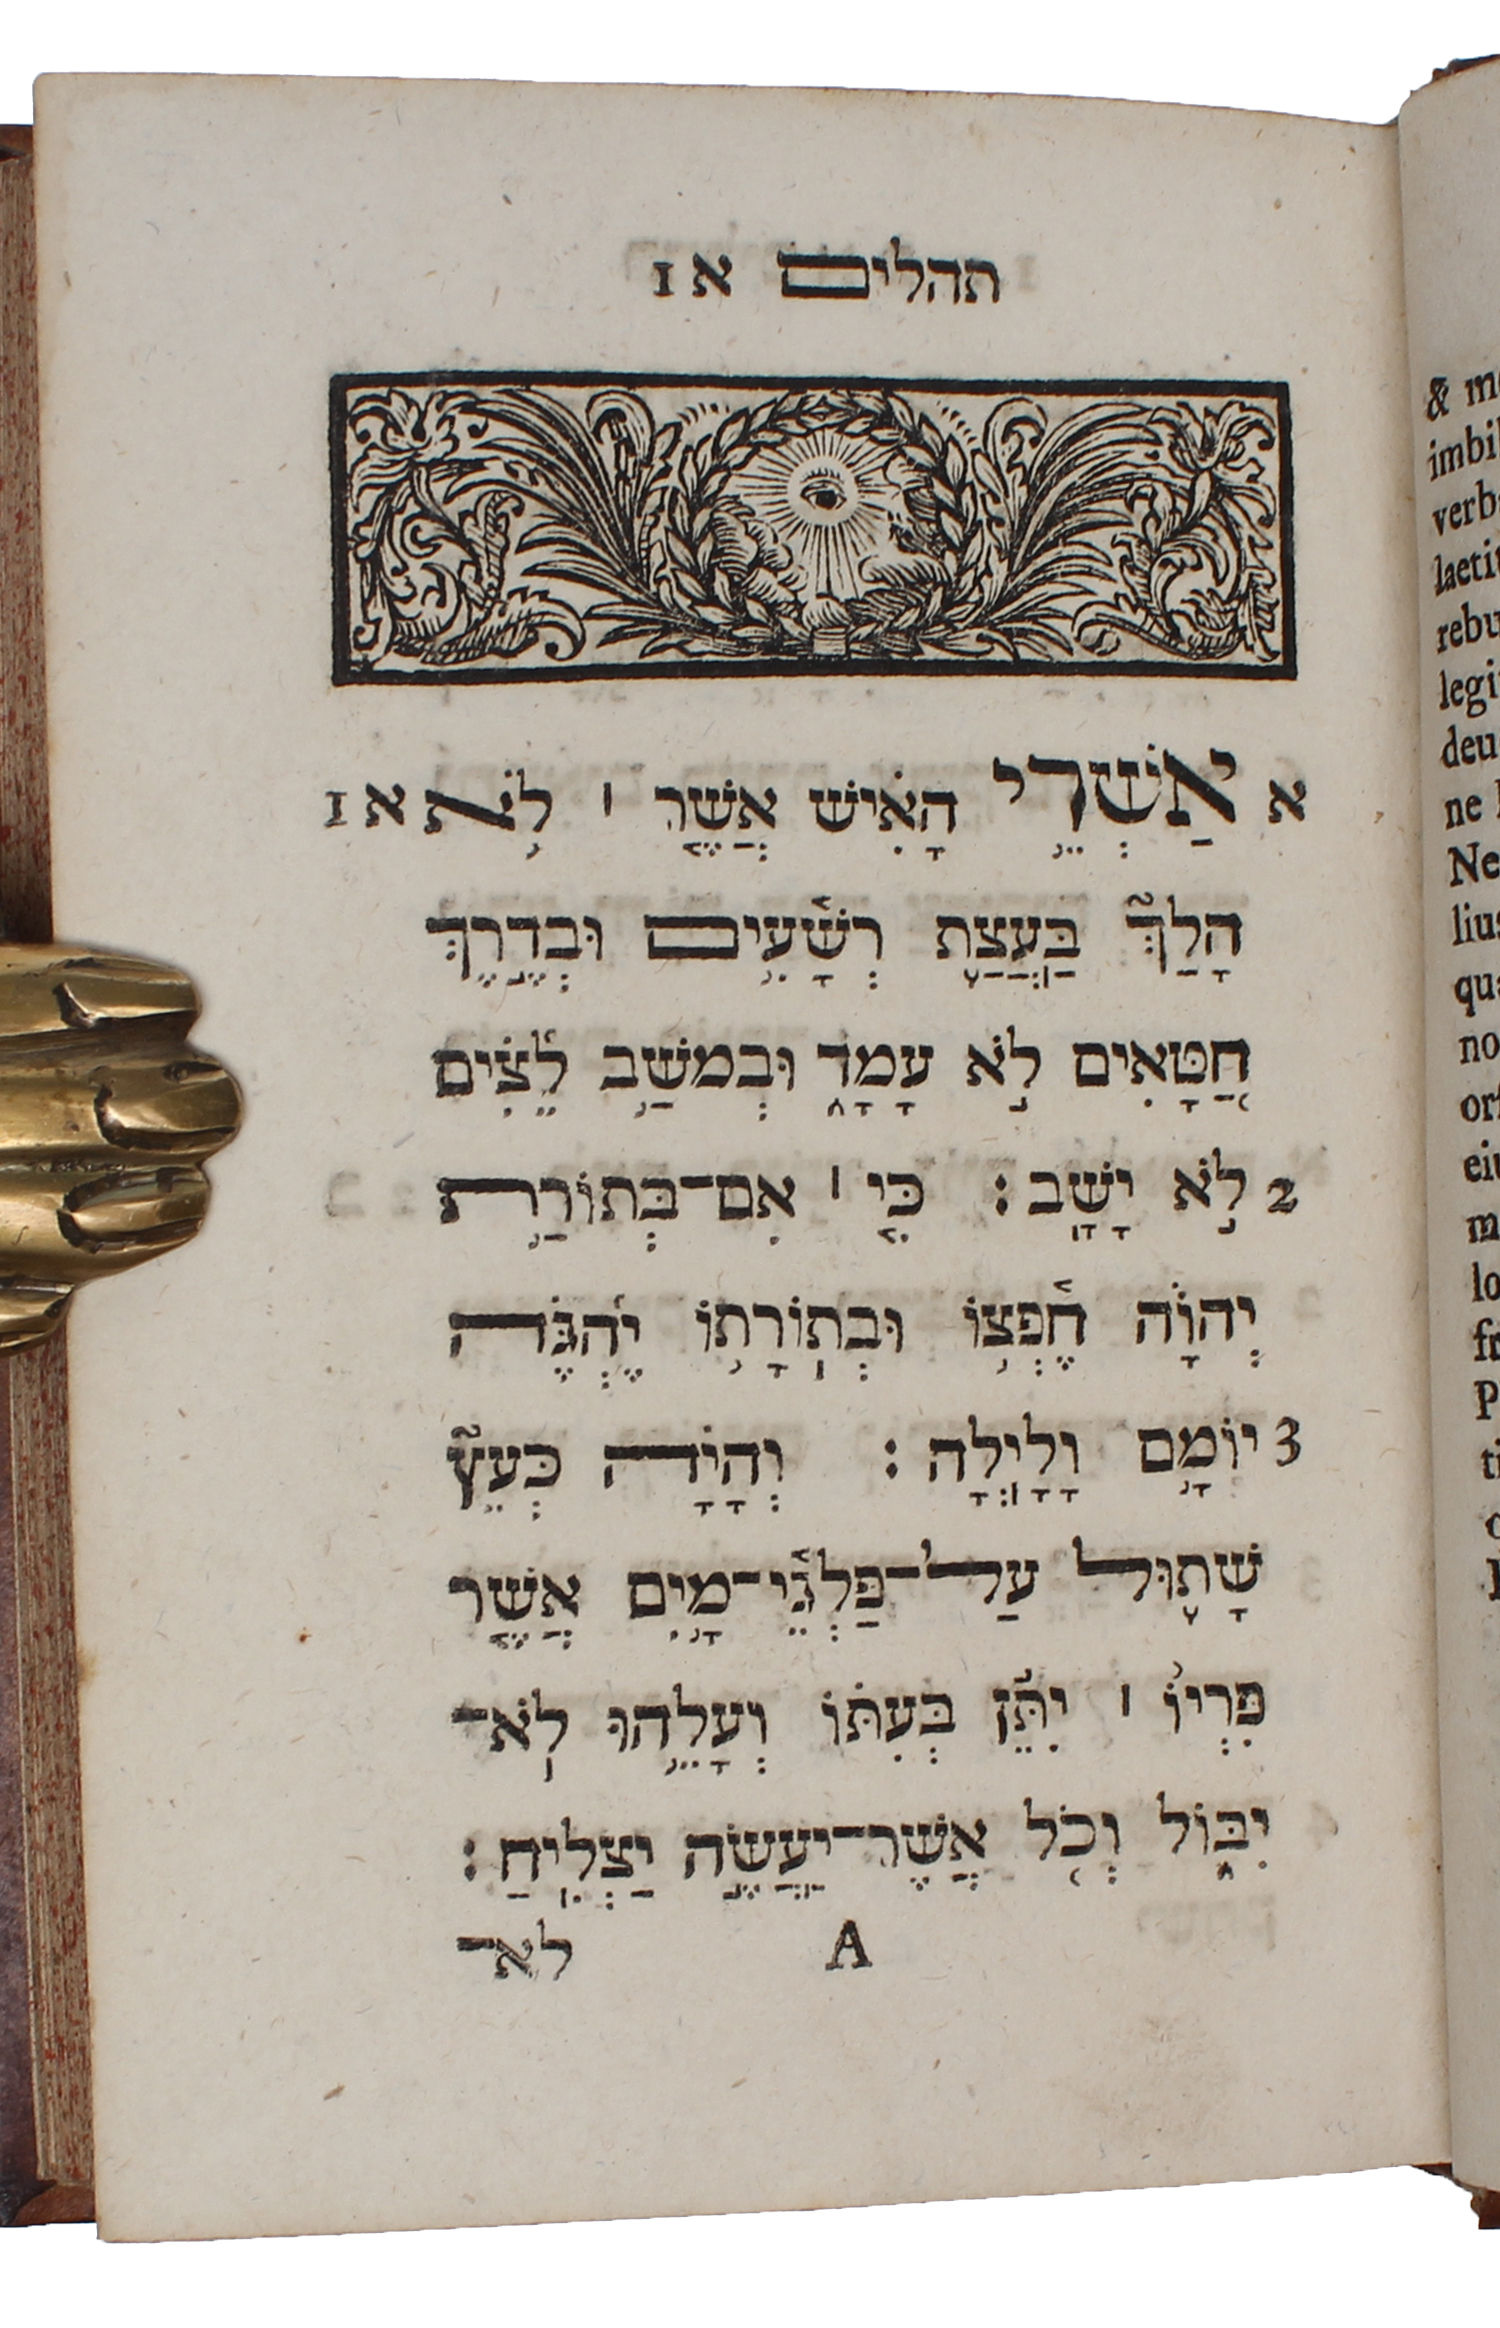 תהלים א 1
א אַשְׁרֵ֥י הָאִ֗ישׁ אֲשֶׁ֤ר ׀ לֹ֥א א 1
הָלַךְ֮ בַּעֲצַ֪ת רְשָׁ֫עִ֥ים וּבְדֶ֣רֶךְ
חַ֭טָּאִים לֹ֣א עָמָ֑ד וּבְמֹשַׁ֥ב לֵ֝צִ֗ים
2 לֹ֣א יָשָֽׁב׃ כִּ֤י ׀ אִ֥ם־בְּתוֹרַ֥ת
יְהוָ֗ה חֶ֫פְצ֥וֹ וּֽבְתוֹרָת֥וֹ יֶ֝הְגֶּ֗ה
3 יוֹמָ֥ם וָלָֽיְלָה׃ וְֽהָיָ֗ה כְּעֵץ֮
שָׁת֪וּל עַֽל־פַּלְגֵ֫י־מָ֥יִם אֲשֶׁ֤ר
פִּרְי֨וֹ ׀ יִתֵּ֬ן בְּעִתּ֗וֹ וְעָלֵ֥הוּ לֹֽא־
יִבּ֑וֹל וְכֹ֭ל אֲשֶׁר־יַעֲשֶׂ֣ה יַצְלִֽיחַ׃
A לא־
& m
imbi
verb
laeti
rebu
legi
deu
ne
Ne
liu
qu
no
or
ei
m
lo
f
P
t